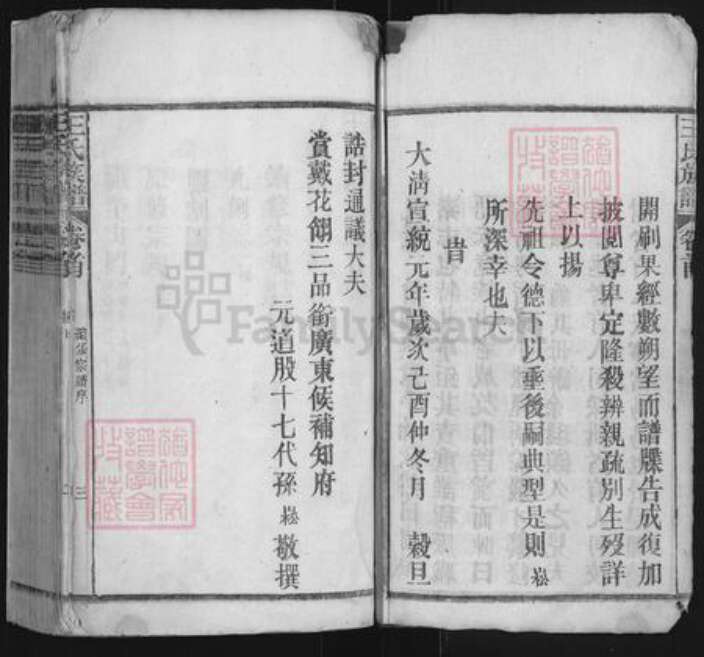 開刷果經數朔望而譜牒告成復加
披閱尊卑定隆殺辨親疏別生歿詳
上以揚
先祖令德下以垂後嗣典型是則崧
所深幸也夫
旹
大淸宣統元年歲次己酉仲冬月 穀旦
誥封通議大夫
賞戴花翎三品銜廣東候補知府
元道股十七代孫崧敬撰
王氏族譜 卷首
宗譜序
三
王氏族譜 卷首
譜學會
收藏
譜學會
收藏
FamilySearch